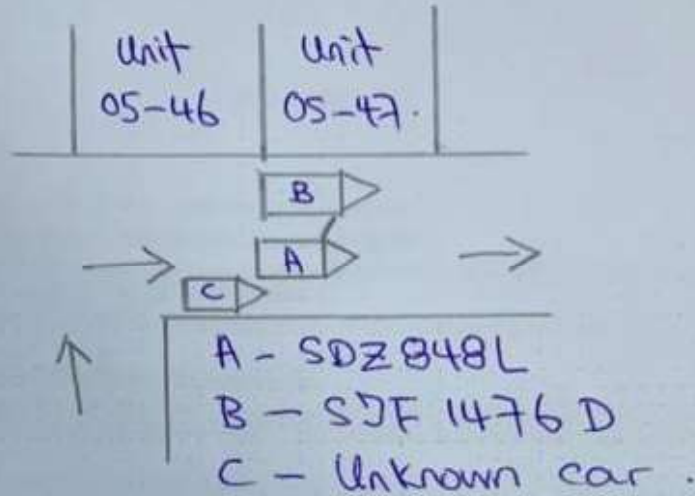 Unit Unit
05-46 05-47.
B
A
C
A - SDZ 848L
B - SJF 1476 D
C - Unknown car.